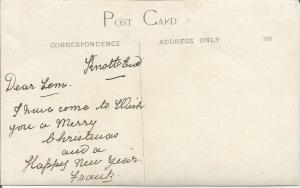 POST CARD
CORRESPONDENCE
ADDRESS ONLY
Knott End
Dear Tom.
I have come to Wish
you a Merry
Christmas
and a
Happy New Year.
Frank.